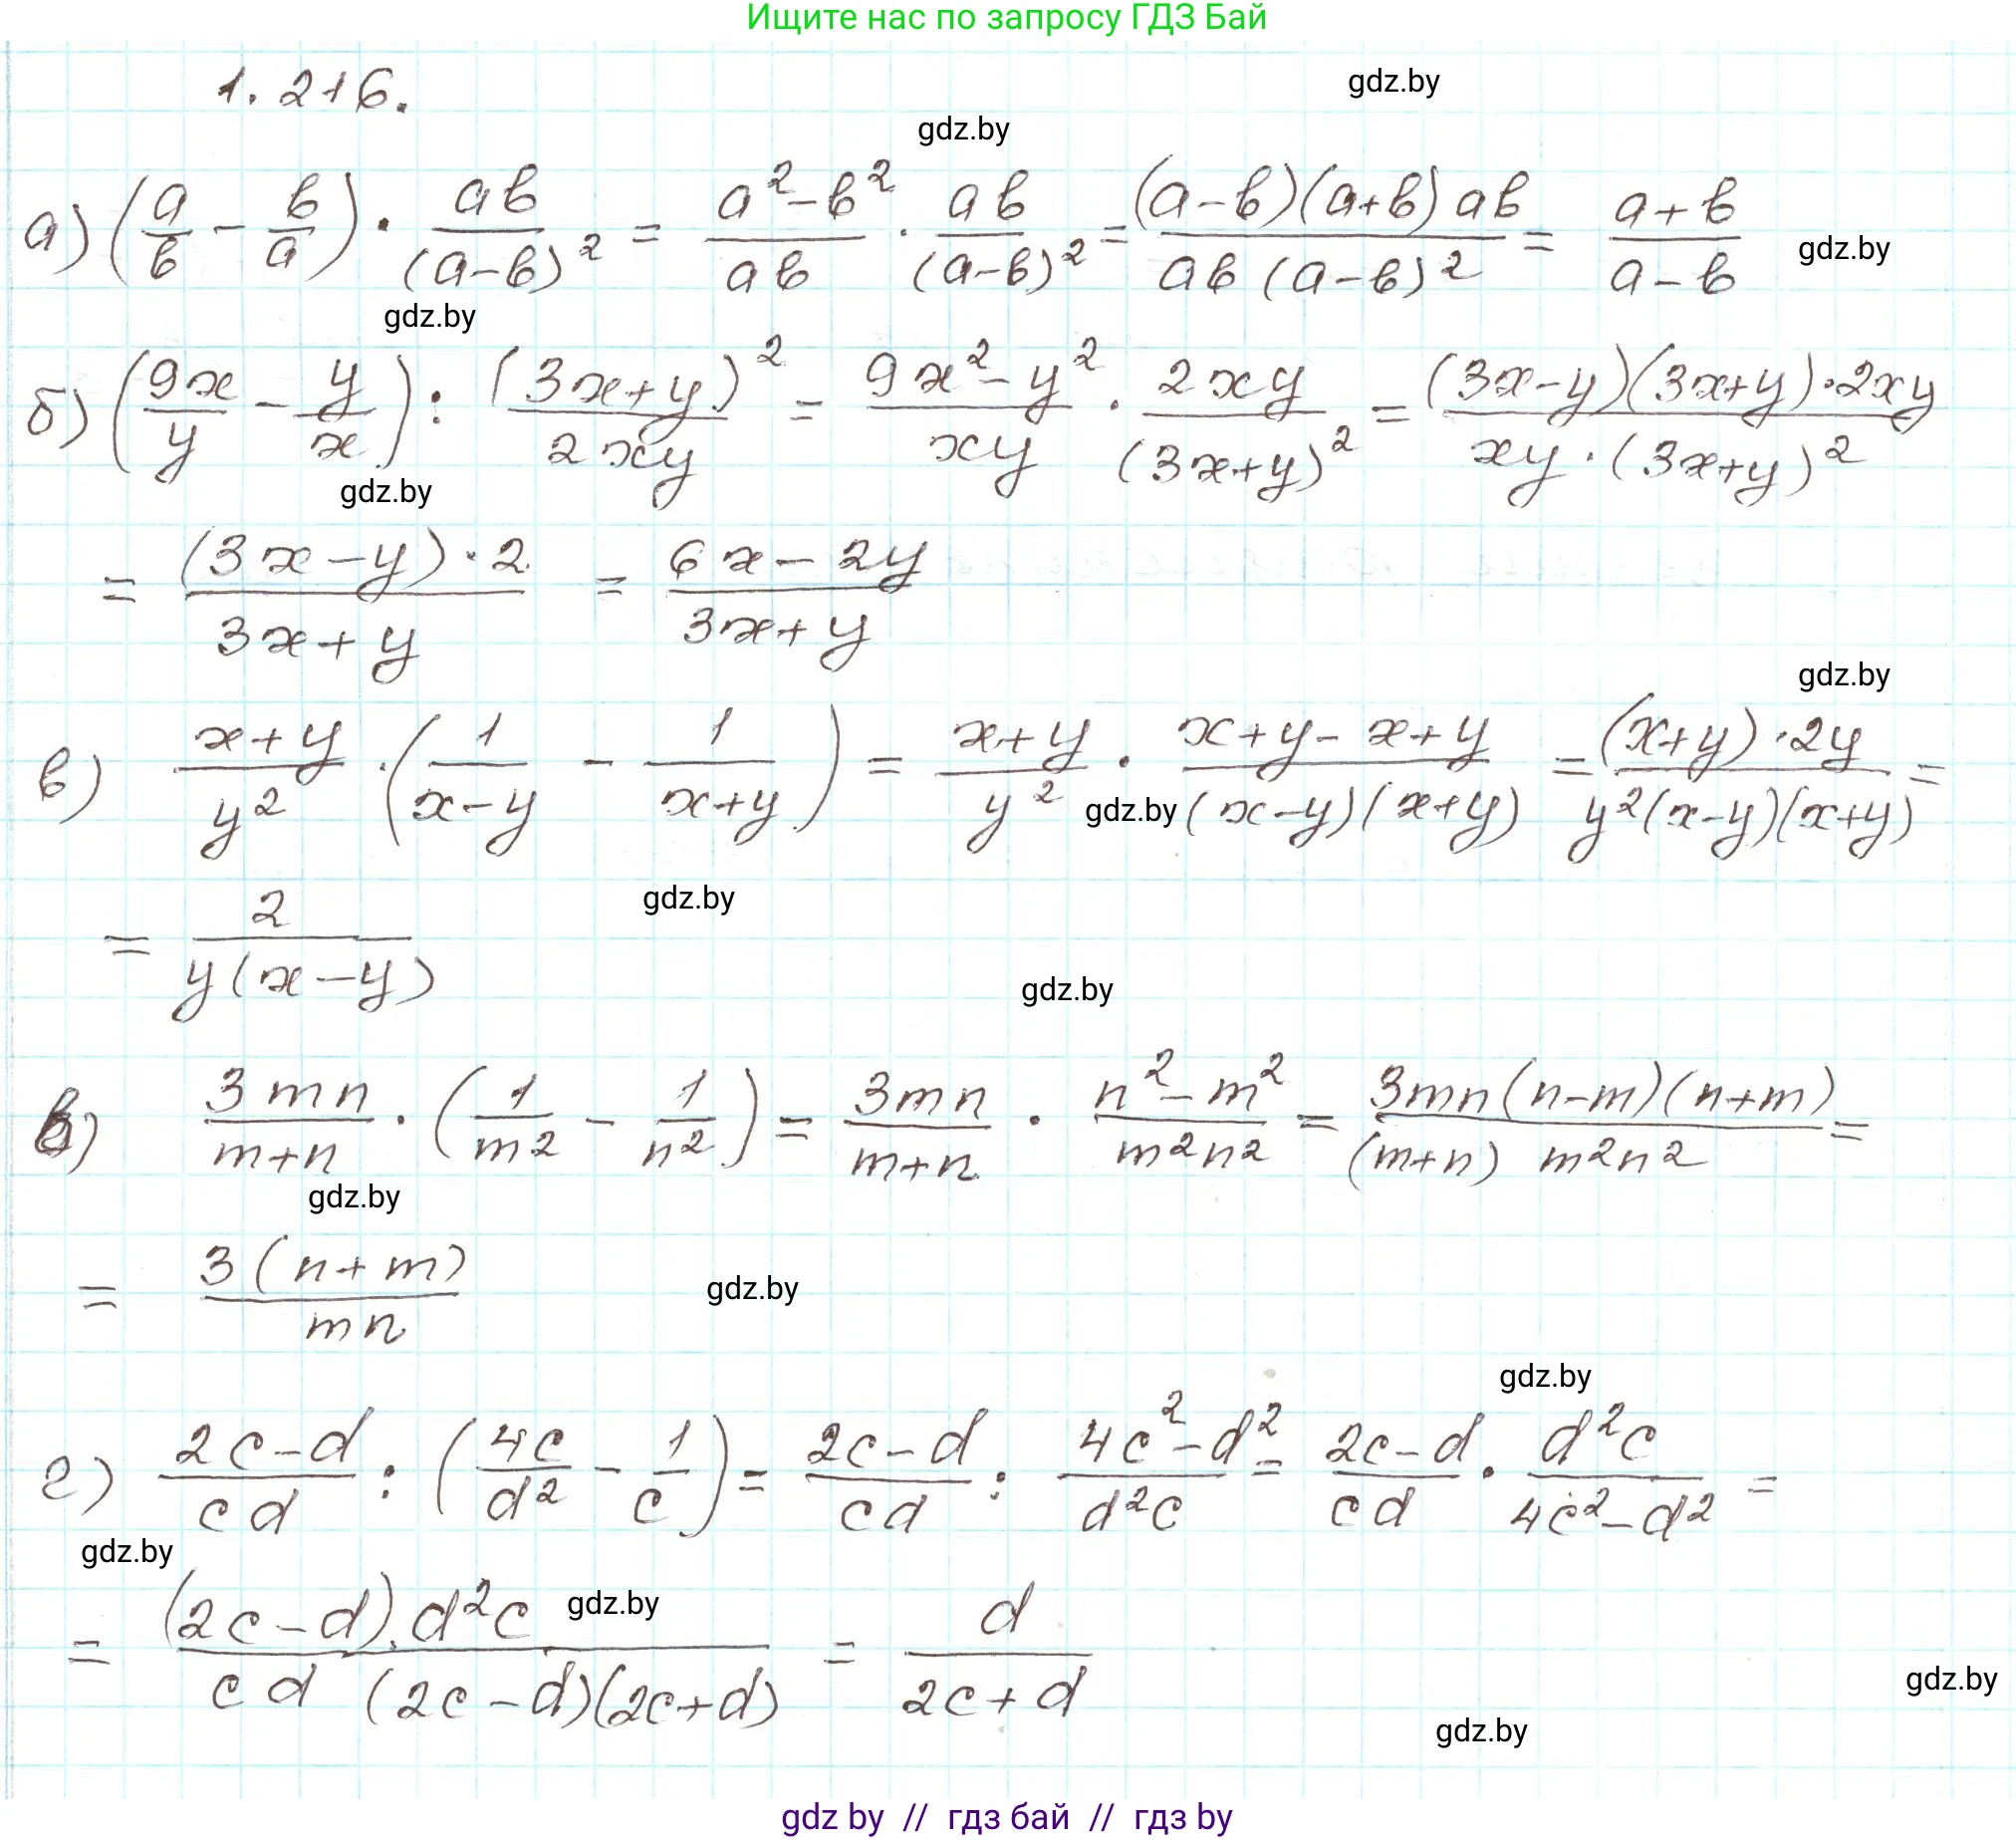 Ищите нас по запросу ГДЗ Бай
1.216.
gdz.by
gdz.by
а) (a/b - b/a) · ab/(a-b)² = (a²-b²)/ab · ab/(a-b)² = (a-b)(a+b)ab/ab(a-b)² = (a+b)/(a-b)
gdz.by
gdz.by
б) (9x/y - y/x) : (3x+y)²/2xy = (9x²-y²)/xy · 2xy/(3x+y)² = (3x-y)(3x+y)·2xy/xy·(3x+y)²
gdz.by
= (3x-y)·2/3x+y = 6x-2y/3x+y
gdz.by
в) x+y/y² · (1/x-y - 1/x+y) = x+y/y² · x+y-x+y/(x-y)(x+y) = (x+y)·2y/y²(x-y)(x+y) =
gdz.by
= 2/y(x-y)
gdz.by
gdz.by
в) 3mn/m+n · (1/m² - 1/n²) = 3mn/m+n · n²-m²/m²n² = 3mn(n-m)(n+m)/(m+n) m²n² =
gdz.by
= 3(n+m)/mn
gdz.by
gdz.by
г) 2c-d/cd : (4c/d² - 1/c) = 2c-d/cd : 4c²-d²/d²c = 2c-d/cd · d²c/4c²-d² =
gdz.by
= (2c-d).d²c/cd (2c-d)(2c+d) = d/2c+d
gdz.by
gdz.by
gdz.by
gdz by // гдз бай // гдз by